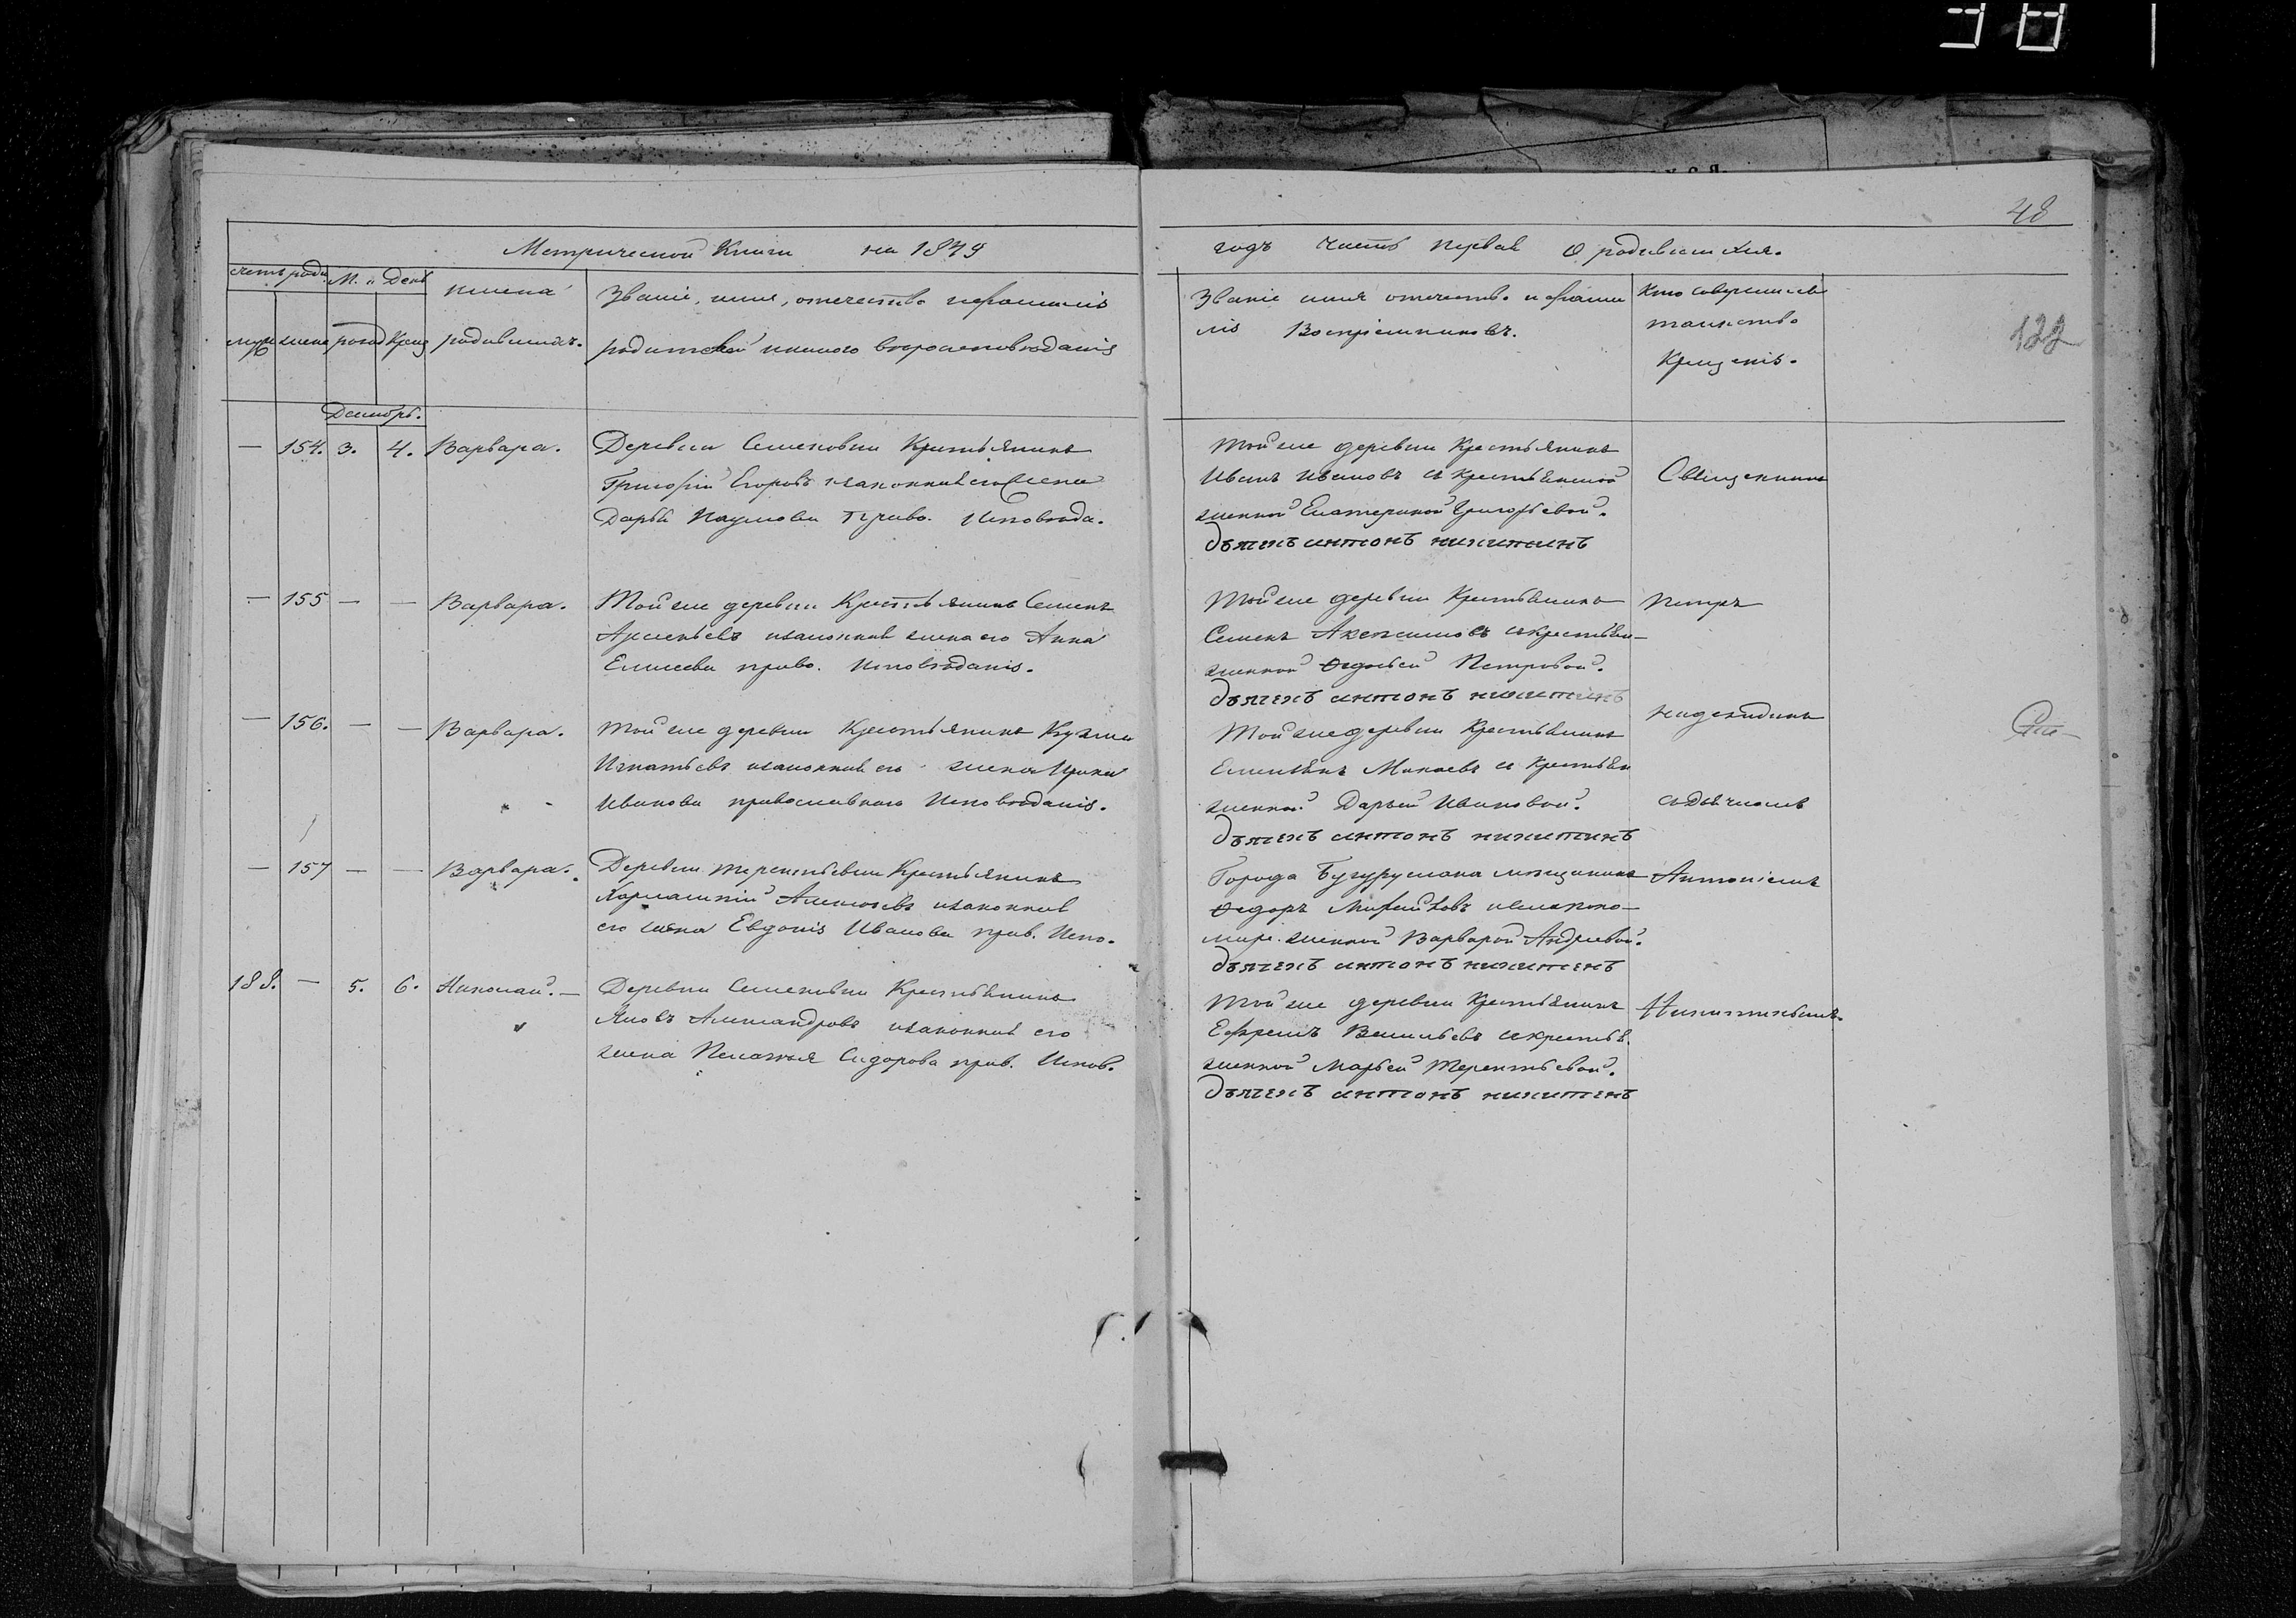 48
122
Метрической Книги на 1849
годъ Часть первая О родившихся.
счетъ роди. М. и День
муж. женс. рожд. Крещ.
имена
родившихъ.
Званіе, имя, отечество и фамилія
родителей и какого вѣроисповѣданія
Званіе имя отечество и фами
лія Воспріемниковъ.
Кто совершалъ
таинство
Крещенія.
Декабрь.
— 154. 3. 4. Варвара.
Деревни Семеновки Крестьянинъ
Григорій Егоровъ и законная его жена
Дарья Наумова право. Исповѣда.
Той же деревни Крестьянинъ
Иванъ Ивановъ и крестьянской
женкой Екатериной Григорьевой.
дьячекъ антонъ никитинъ
Священникъ
— 155 — — Варвара.
Той же деревни Крестьянинъ Семенъ
и законная жена его Анна
Елисеева право. Исповѣданія.
Той же деревни Крестьянинъ
Семенъ и крестьян—
женкой Петровой.
дьячекъ антонъ никитинъ
Петръ
— 156. — — Варвара.
Той же деревни Крестьянинъ Кузма
Игнатьевъ и законная его жена Ирина
Иванова православнаго Исповѣданія.
Той же деревни Крестьянинъ
Емельянъ Минаевъ и Крестьян
женкой Дарьей Ивановой.
дьячекъ антонъ никитинъ
Надеждинъ
съ дьячкомъ
— 157 — — Варвара.
Деревни Терентьевки Крестьянинъ
Алексѣевъ и законная
его жена Евдокія Иванова прав. Испо.
Города Бугуруслана мещанинъ
Ѳедоръ Михайловъ
женкой Варварой Андреевой.
дьячекъ антонъ никитинъ
Антоніемъ
188. — 5. 6. Николай. —
Деревни Семеновки Крестьянинъ
Яковъ Александровъ и законная его
жена Пелагия Сидорова прав. Испов.
Той же деревни Крестьянинъ
Ефремъ Васильевъ и крестья.
женкой Марьей Терентьевой.
дьячекъ антонъ никитинъ
Никитинымъ.